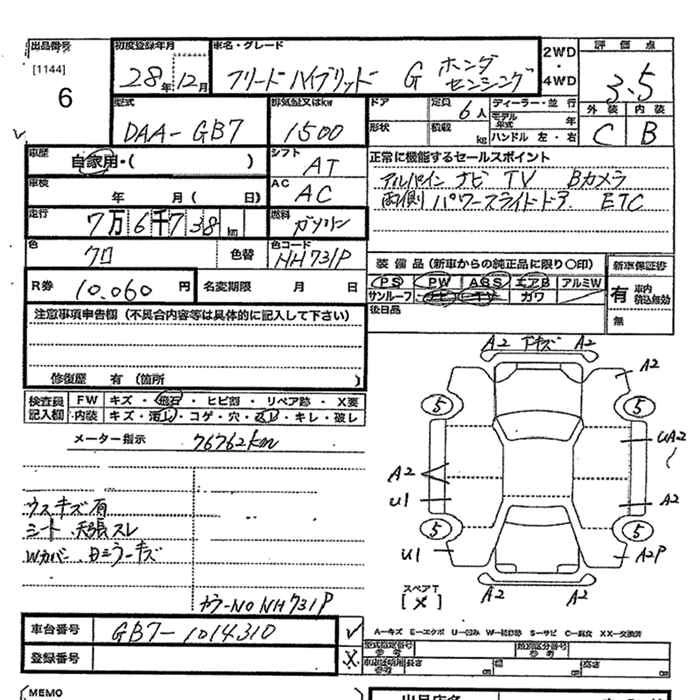 出品番号
[1144]
6
初度登録年月
28年12月
車名・グレード
フリードハイブリッド G ホンダセンシング
2WD・4WD
評価点
3.5
外装 内装
C B
型式
DAA-GB7
排気量又はkw
1500
ドア
形状
定員 6人
積載 kg
ディーラー・並行
モデル年式 年
ハンドル 左・右
車歴
自家用・( )
シフト
AT
正常に機能するセールスポイント
アルパイン ナビ TV Bカメラ
両側 パワースライドドア ETC
車検
年 月( 日)
AC
AC
走行
7万6千738km
燃料
ガソリン
色
クロ
色替
色コード
NH731P
装備品(新車からの純正品に限り〇印)
PS PW ABS エアB アルミW
サンルーフ ナビ カワ
新車保証書
有 車内積込無効
無
後日品
R券 10.060円
名変期限 月 日
注意事項申告欄(不具合内容等は具体的に記入して下さい)
修復歴 有(箇所 )
検査員記入欄
FW キズ・飛石・ヒビ割・リペア跡・X要
内装 キズ・汚レ・コゲ・穴・スレ・キレ・破レ
メーター指示 76762km
ウスキズ有
シート、天張スレ
Wカバー、
カラーNO NH731P
A2 下キズ A2
A2
5 5
UA2
A2
U1
A2
5 5
U1
A2P
A2 A2
スペアT
[×]
車台番号 GB7-1014310
登録番号
A-キズ E-エクボ U-凹み W-補修跡 S-サビ C-腐食 XX-交換済
型式指定番号 参考
類別区分番号 参考
車庫証明用 参考
長さ cm
幅 cm
高さ cm
MEMO
出品店名